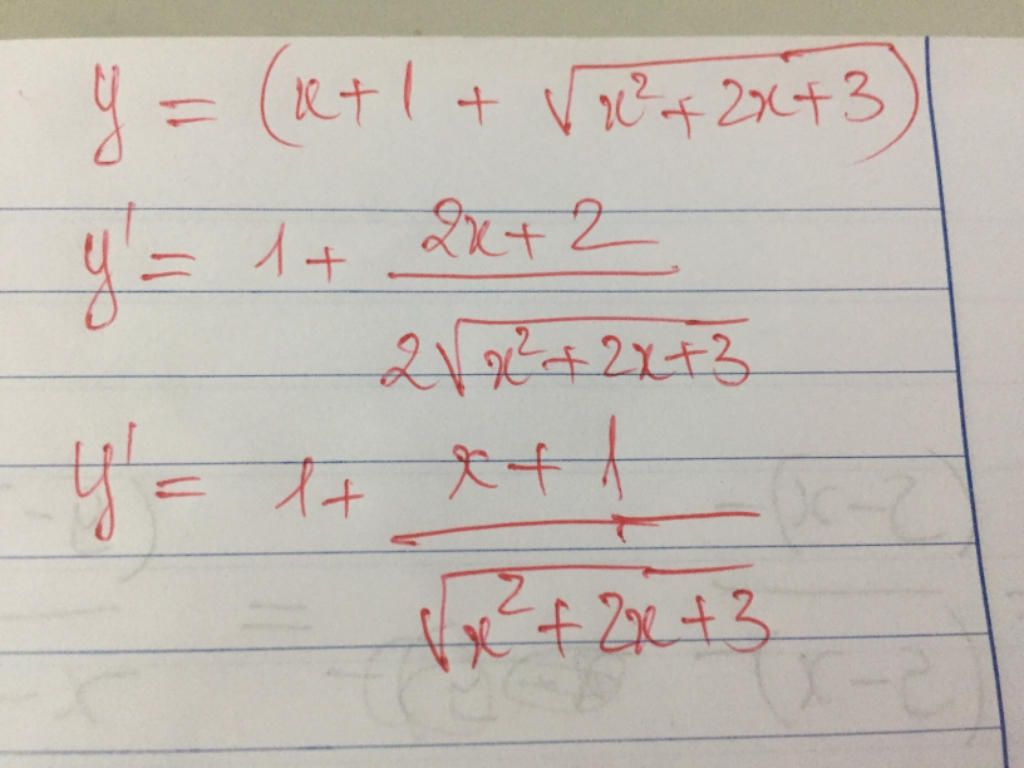 y = (x+1 + √(x²+2x+3))
y' = 1 + (2x+2)/(2√(x²+2x+3))
y' = 1 + (x+1)/(√(x²+2x+3))